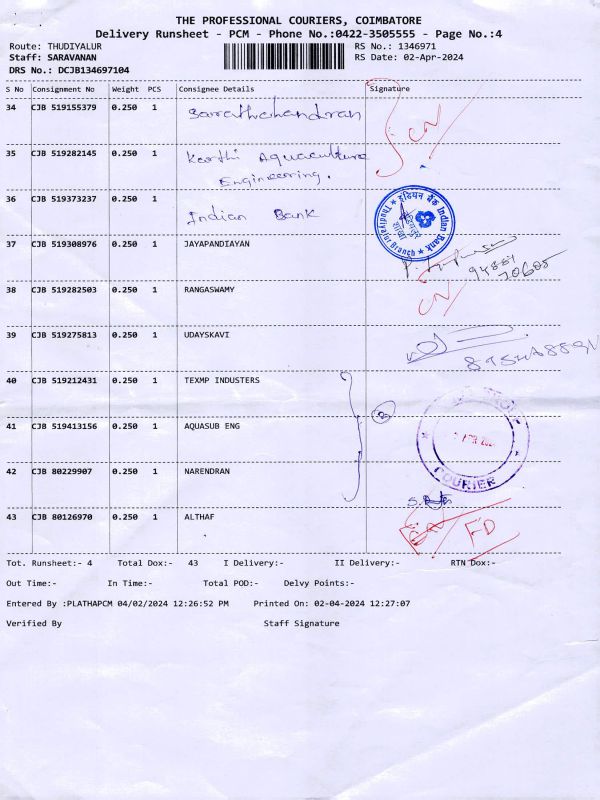 THE PROFESSIONAL COURIERS, COIMBATORE
Delivery Runsheet - PCM - Phone No.:0422-3505555 - Page No.:4
Route: THUDIYALUR RS No.: 1346971
Staff: SARAVANAN RS Date: 02-Apr-2024
DRS No.: DCJB134697104
S No Consignment No Weight PCS Consignee Details Signature
34 CJB 519155379 0.250 1 Sarathchandran CN
35 CJB 519282145 0.250 1 Keerthi Aquaculture
Engineering.
36 CJB 519373237 0.250 1 Indian Bank
इंडियन बैंक Indian Bank
Thudiyalur Branch
37 CJB 519308976 0.250 1 JAYAPANDIAYAN
38 CJB 519282503 0.250 1 RANGASWAMY CN
39 CJB 519275813 0.250 1 UDAYSKAVI
40 CJB 519212431 0.250 1 TEXMP INDUSTERS
41 CJB 519413156 0.250 1 AQUASUB ENG 3
COURIER
42 CJB 80229907 0.250 1 NARENDRAN
43 CJB 80126970 0.250 1 ALTHAF FD
Tot. Runsheet:- 4 Total Dox:- 43 I Delivery:- II Delivery:- RTN Dox:-
Out Time:- In Time:- Total POD:- Delvy Points:-
Entered By :PLATHAPCM 04/02/2024 12:26:52 PM Printed On: 02-04-2024 12:27:07
Verified By Staff Signature